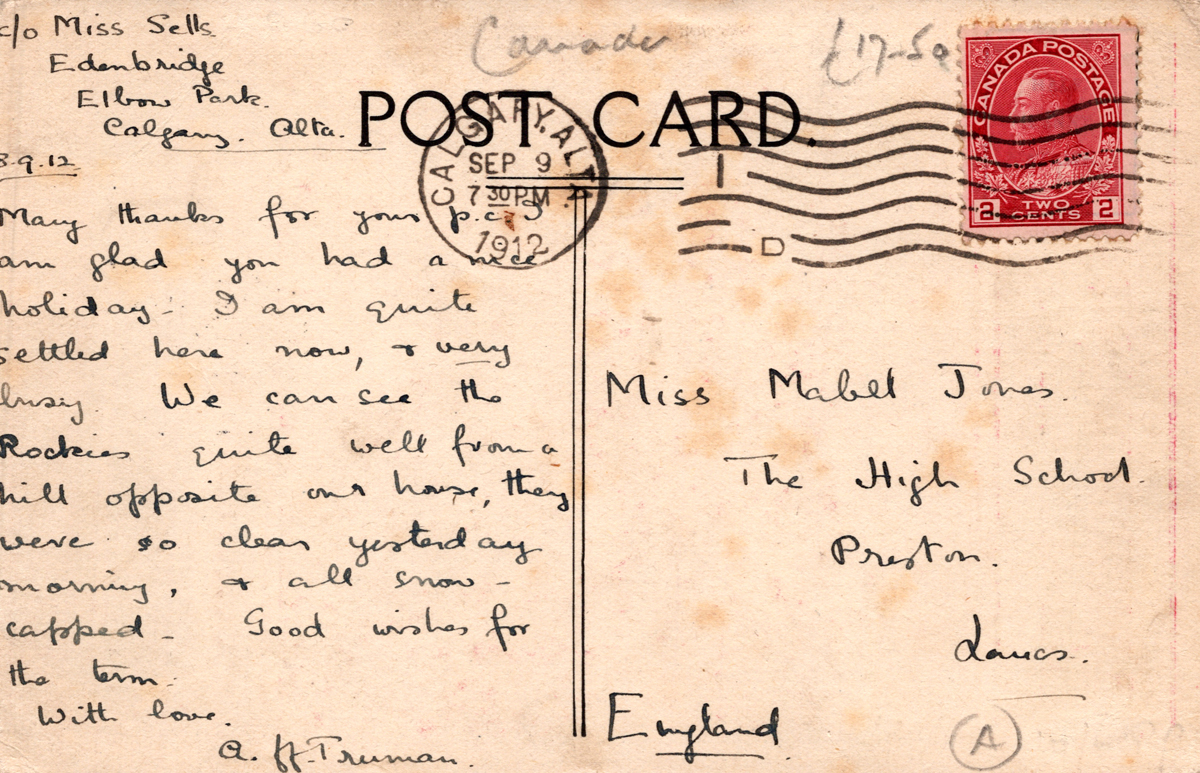 c/o Miss Sells
Edenbridge
Elbow Park.
Calgary. Alta.
8.9.12
Many thanks for your p.c. I
am glad you had a nice
holiday - I am quite
settled here now, & very
busy. We can see the
Rockies quite well from a
hill opposite our house, they
were so clear yesterday
morning, & all snow-
capped - Good wishes for
the term.
With love.
A. ff. Truman.
Canada
£17-50
POST CARD.
CALGARY. ALTA.
SEP 9
7 30 PM
1912
I
D
CANADA POSTAGE
2 TWO CENTS 2
Miss Mabel Jones.
The High School.
Preston.
Lancs.
England
A